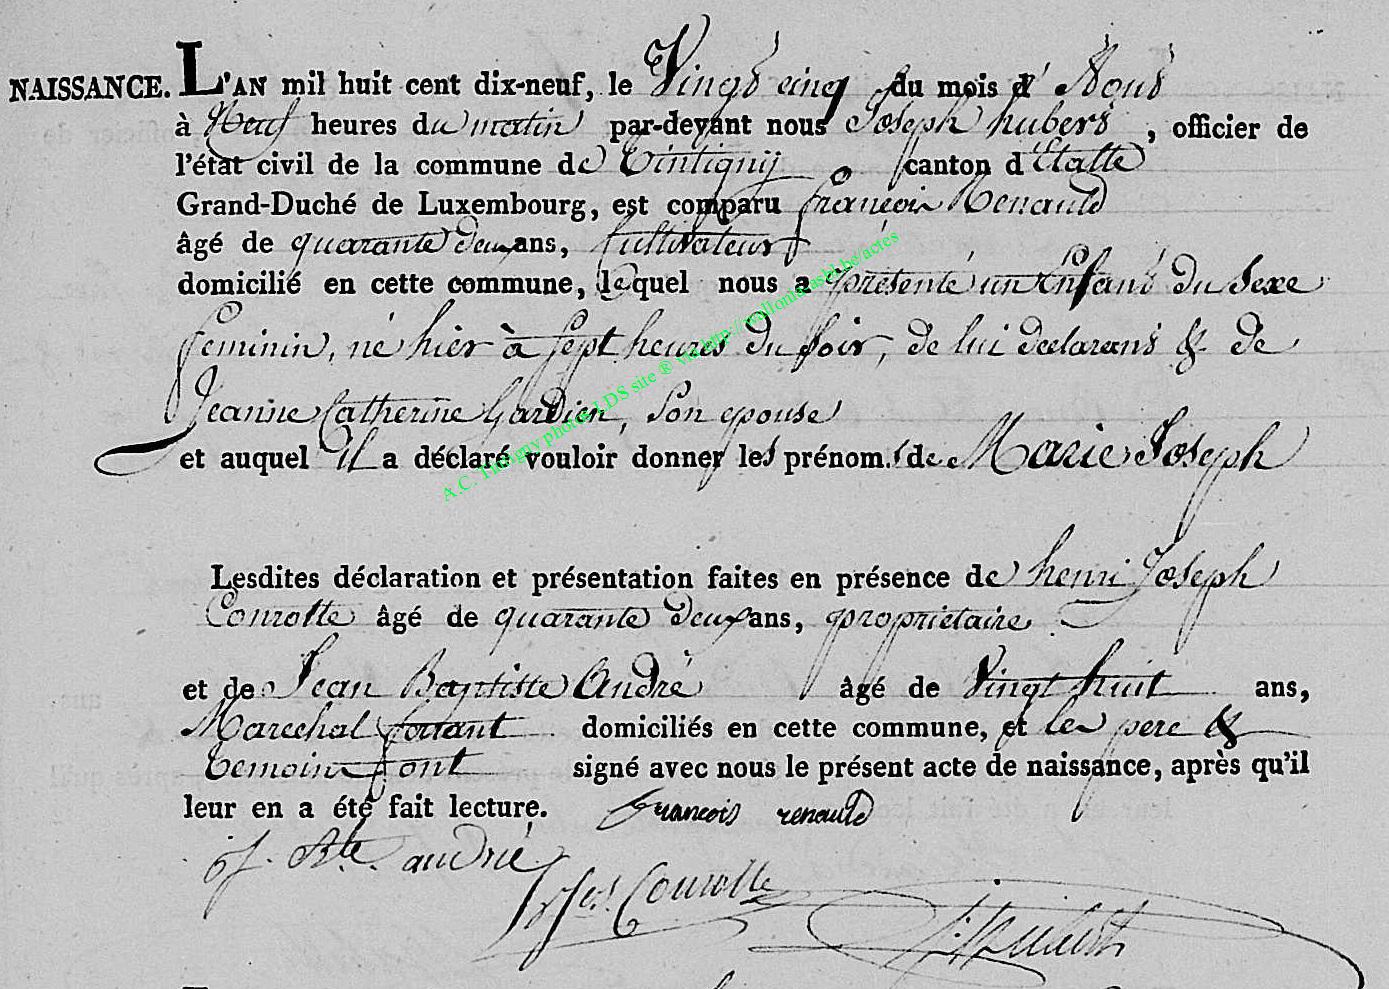 NAISSANCE. L'AN mil huit cent dix-neuf, le Vingt cinq du mois d'Aout
à Neuf heures du matin par-devant nous Joseph hubert, officier de
l'état civil de la commune de Tintigny canton d'Etalle
Grand-Duché de Luxembourg, est comparu françois Renauld
âgé de quarante deux ans, Cultivateur
domicilié en cette commune, lequel nous a présenté un Enfant du Sexe
feminin, né hier à sept heures du soir, de lui declarant & de
Jeanne Catherine Gardien, son epouse
et auquel il a déclaré vouloir donner les prénoms de Marie Joseph
Lesdites déclaration et présentation faites en présence de henri Joseph
Conrotte âgé de quarante deux ans, propriétaire
et de Jean Baptiste André âgé de Vingt huit ans,
Marechal ferrant domiciliés en cette commune, et les pere &
temoins sont signé avec nous le présent acte de naissance, après qu'il
leur en a été fait lecture. francois renauld
j. Bte. andrié
h. Jos. Conrotte J. hubert
A.C. Tintigny photos LDS site ® via http://walloniaasbl.be/actes